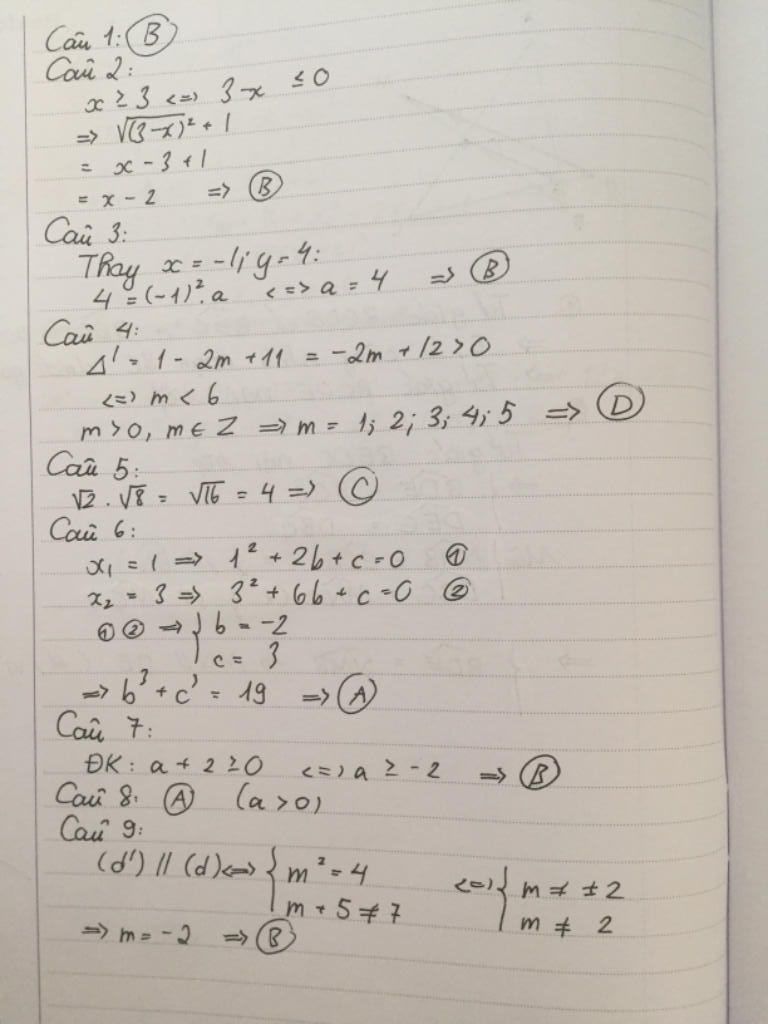 Câu 1: B
Câu 2:
x ≥ 3 <=> 3-x ≤ 0
=> √(3-x)² + 1
= x - 3 + 1
= x - 2 => B
Câu 3:
Thay x = -1; y = 4:
4 = (-1)². a <=> a = 4 => B
Câu 4:
Δ' = 1 - 2m + 11 = -2m + 12 > 0
<=> m < 6
m > 0, m ∈ Z => m = 1; 2; 3; 4; 5 => D
Câu 5:
√2 . √8 = √16 = 4 => C
Câu 6:
x₁ = 1 => 1² + 2b + c = 0 ①
x₂ = 3 => 3² + 6b + c = 0 ②
① ② => { b = -2
c = 3
=> b³ + c³ = 19 => A
Câu 7:
ĐK: a + 2 ≥ 0 <=> a ≥ -2 => B
Câu 8: A (a > 0)
Câu 9:
(d') // (d) <=> { m² = 4 <=> { m = ±2
m + 5 ≠ 7 m ≠ 2
=> m = -2 => B